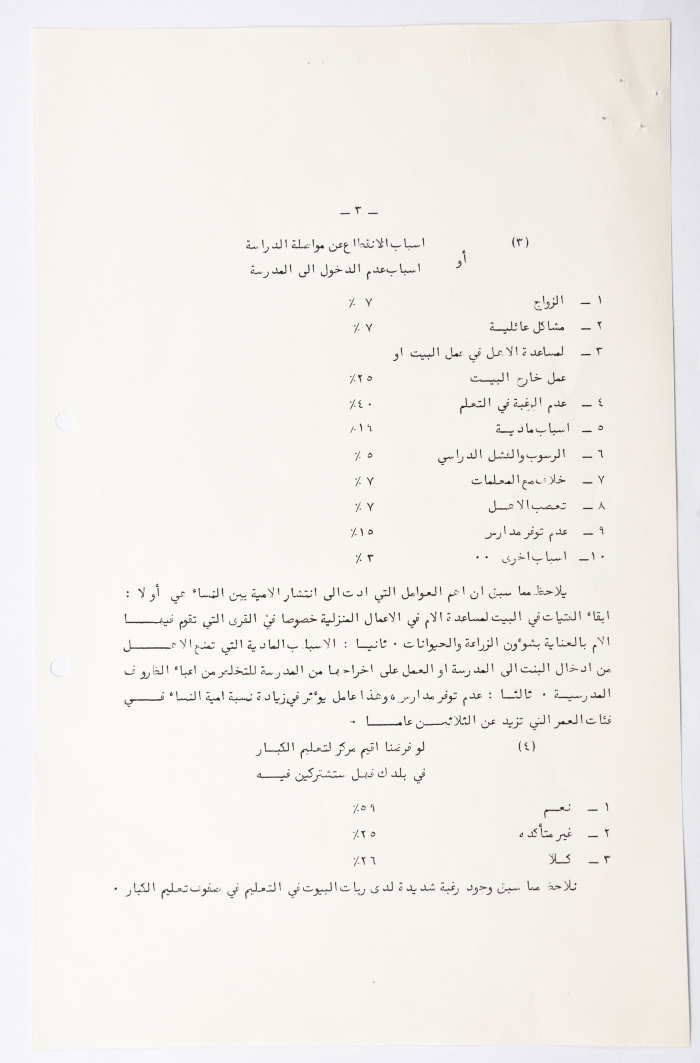 ـ ٣ ـ
(٣) اسباب الانقطاع عن مواصلة الدراسة
أو
اسباب عدم الدخول الى المدرسة
١ ـ الزواج ٧ ٪
٢ ـ مشاكل عائلية ٧ ٪
٣ ـ لمساعدة الاهل في عمل البيت او
عمل خارج البيت ٢٥٪
٤ ـ عدم الرغبة في التعلم ٤٠٪
٥ ـ اسباب مادية ١٦٪
٦ ـ الرسوب والفشل الدراسي ٥ ٪
٧ ـ خلاف مع المعلمات ٧ ٪
٨ ـ تعصب الاهل ٧ ٪
٩ ـ عدم توفر مدارس ١٥٪
١٠ـ اسباب اخرى ٠٠ ٣ ٪
يلاحظ مما سبق ان اهم العوامل التي ادت الى انتشار الامية بين النساء هي أولا :
ابقاء الفتيات في البيت لمساعدة الام في الاعمال المنزلية خصوصا في القرى التي تقوم فيها
الام بالعناية بشوءون الزراعة والحيوانات ٠ ثانيا : الاسباب المادية التي تمنع الاهل
من ادخال البنت الى المدرسة او العمل على اخراجها من المدرسة للتخلص من اعباء الظروف
المدرسية ٠ ثالثا : عدم توفر مدارس وهذا عامل يوءثر في زيادة نسبة امية النساء في
فئات العمر التي تزيد عن الثلاثين عاما ٠
(٤) لو فرضنا اقيم مركز لتعليم الكبار
في بلدك فهل ستشتركين فيه
١ ـ نعم ٥٩٪
٢ ـ غير متأكده ٢٥٪
٣ ـ كلا ٢٦٪
نلاحظ مما سبق وجود رغبة شديدة لدى ربات البيوت في التعليم في صفوف تعليم الكبار ٠